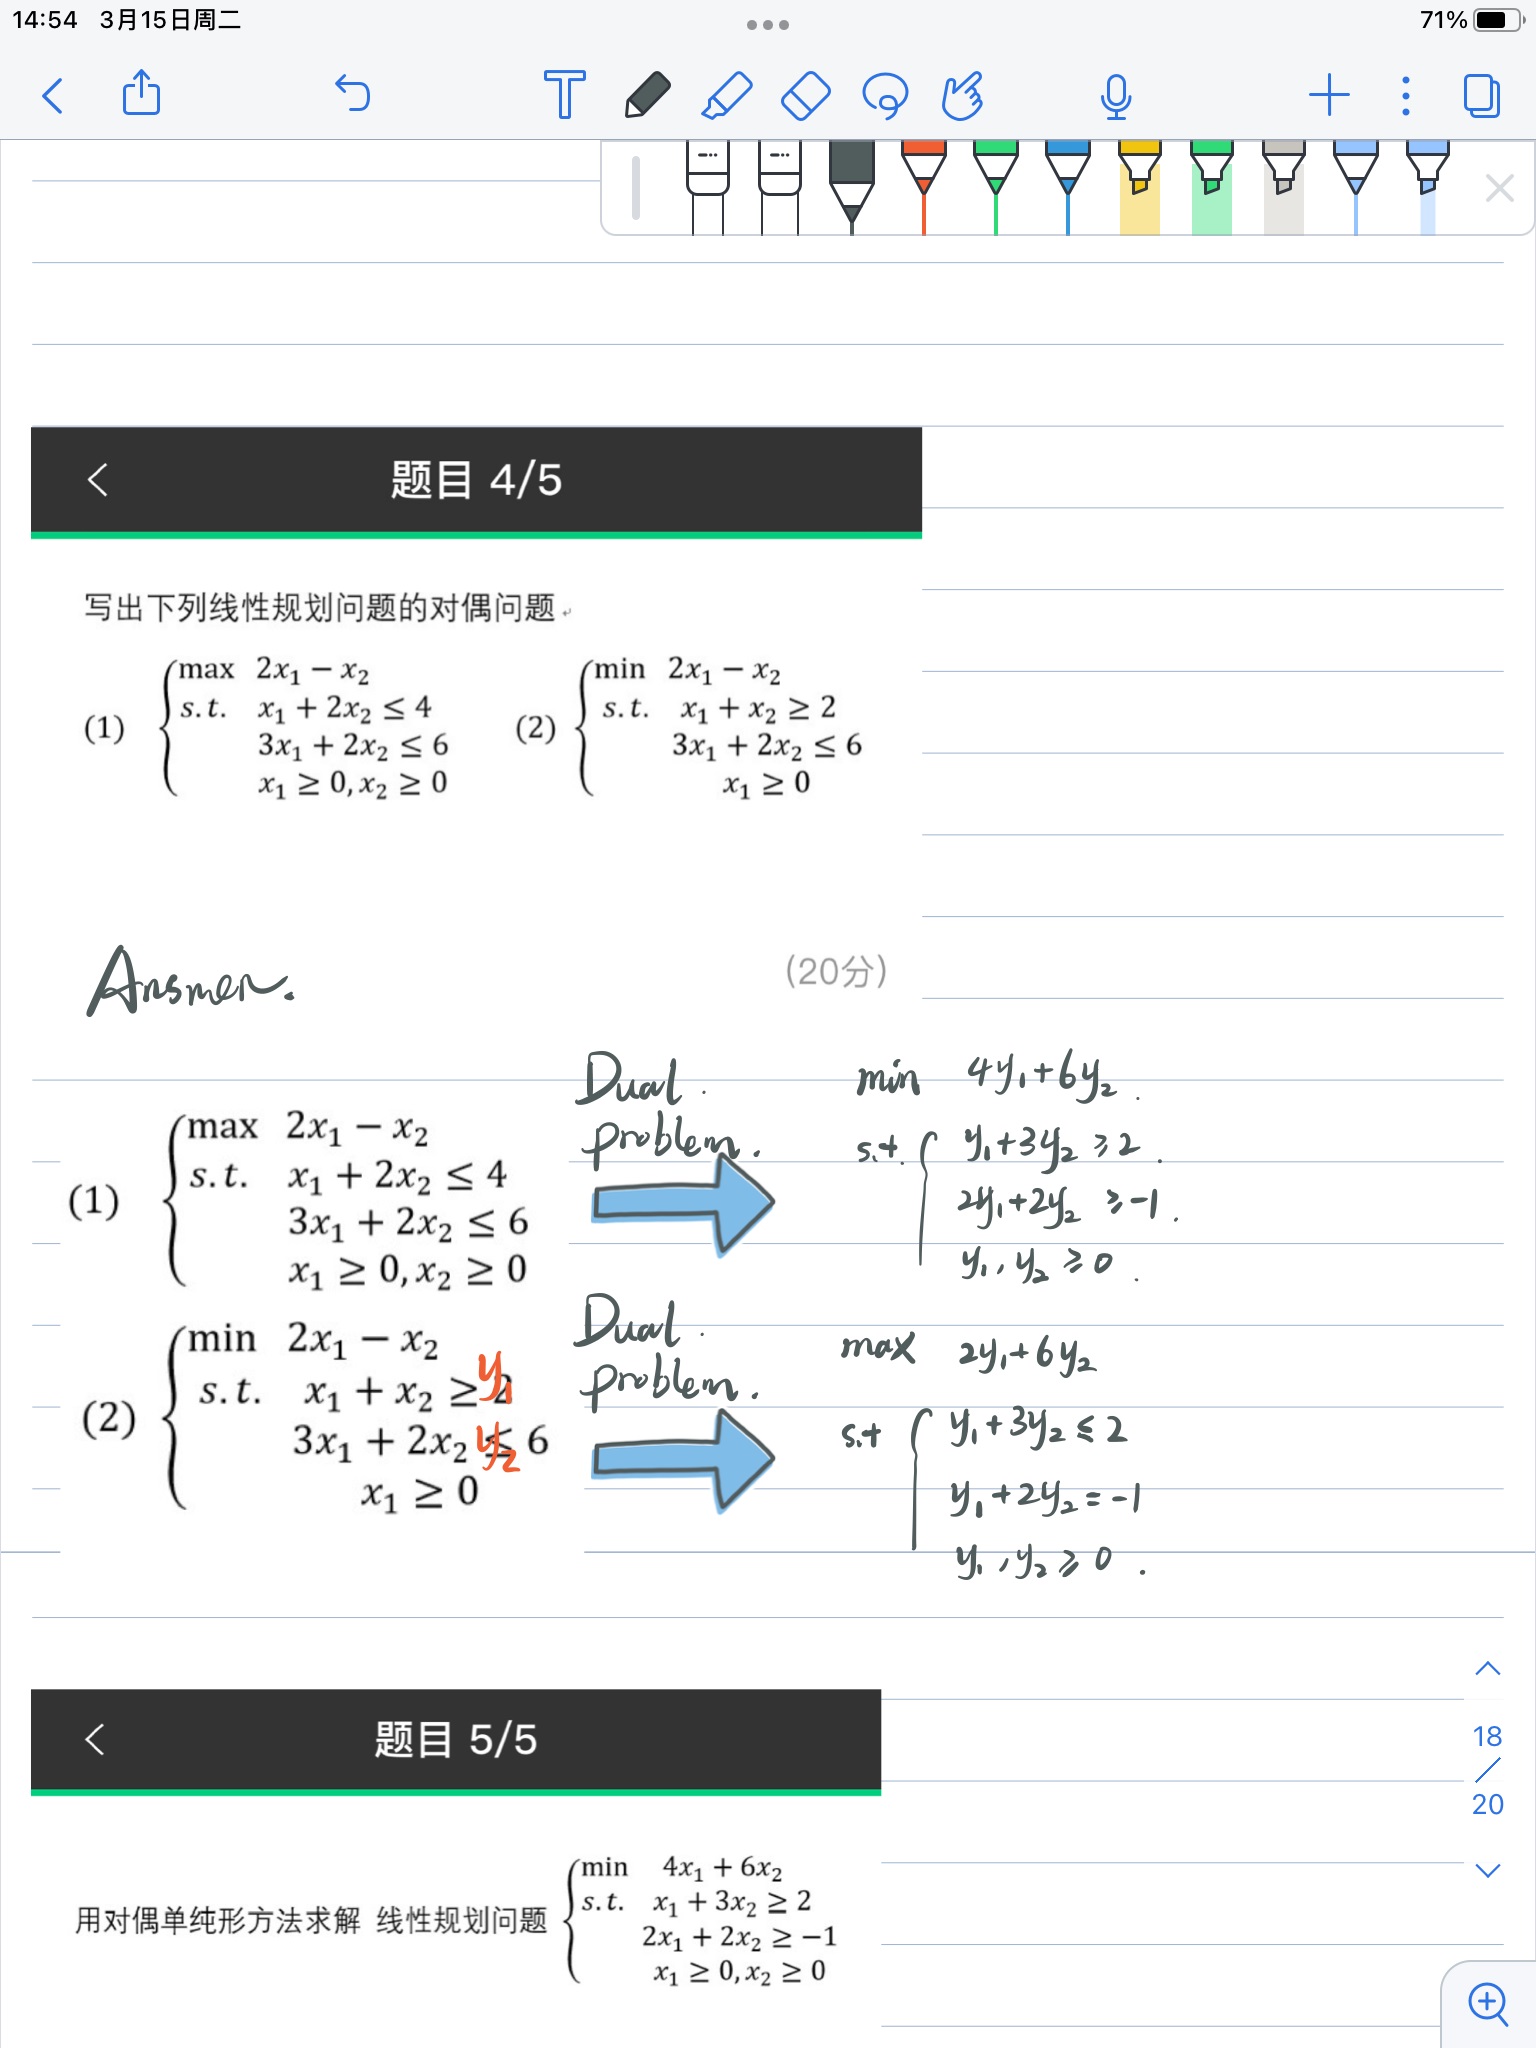 14:54 3月15日周二
71%
题目 4/5
写出下列线性规划问题的对偶问题
(1) max 2x₁ − x₂
s.t. x₁ + 2x₂ ≤ 4
3x₁ + 2x₂ ≤ 6
x₁ ≥ 0, x₂ ≥ 0
(2) min 2x₁ − x₂
s.t. x₁ + x₂ ≥ 2
3x₁ + 2x₂ ≤ 6
x₁ ≥ 0
(20分)
Answer.
(1) max 2x₁ − x₂
s.t. x₁ + 2x₂ ≤ 4
3x₁ + 2x₂ ≤ 6
x₁ ≥ 0, x₂ ≥ 0
Dual.
problem.
min 4y₁+6y₂.
s.t. y₁+3y₂ ≥ 2.
2y₁+2y₂ ≥ -1.
y₁, y₂ ≥ 0.
(2) min 2x₁ − x₂
s.t. x₁ + x₂ ≥ 2
y₁
3x₁ + 2x₂ ≤ 6
y₂
x₁ ≥ 0
Dual.
problem.
max 2y₁+6y₂
s.t y₁+3y₂ ≤ 2
y₁+2y₂ = -1
y₁, y₂ ≥ 0.
题目 5/5
用对偶单纯形方法求解 线性规划问题
min 4x₁ + 6x₂
s.t. x₁ + 3x₂ ≥ 2
2x₁ + 2x₂ ≥ −1
x₁ ≥ 0, x₂ ≥ 0
18
/
20